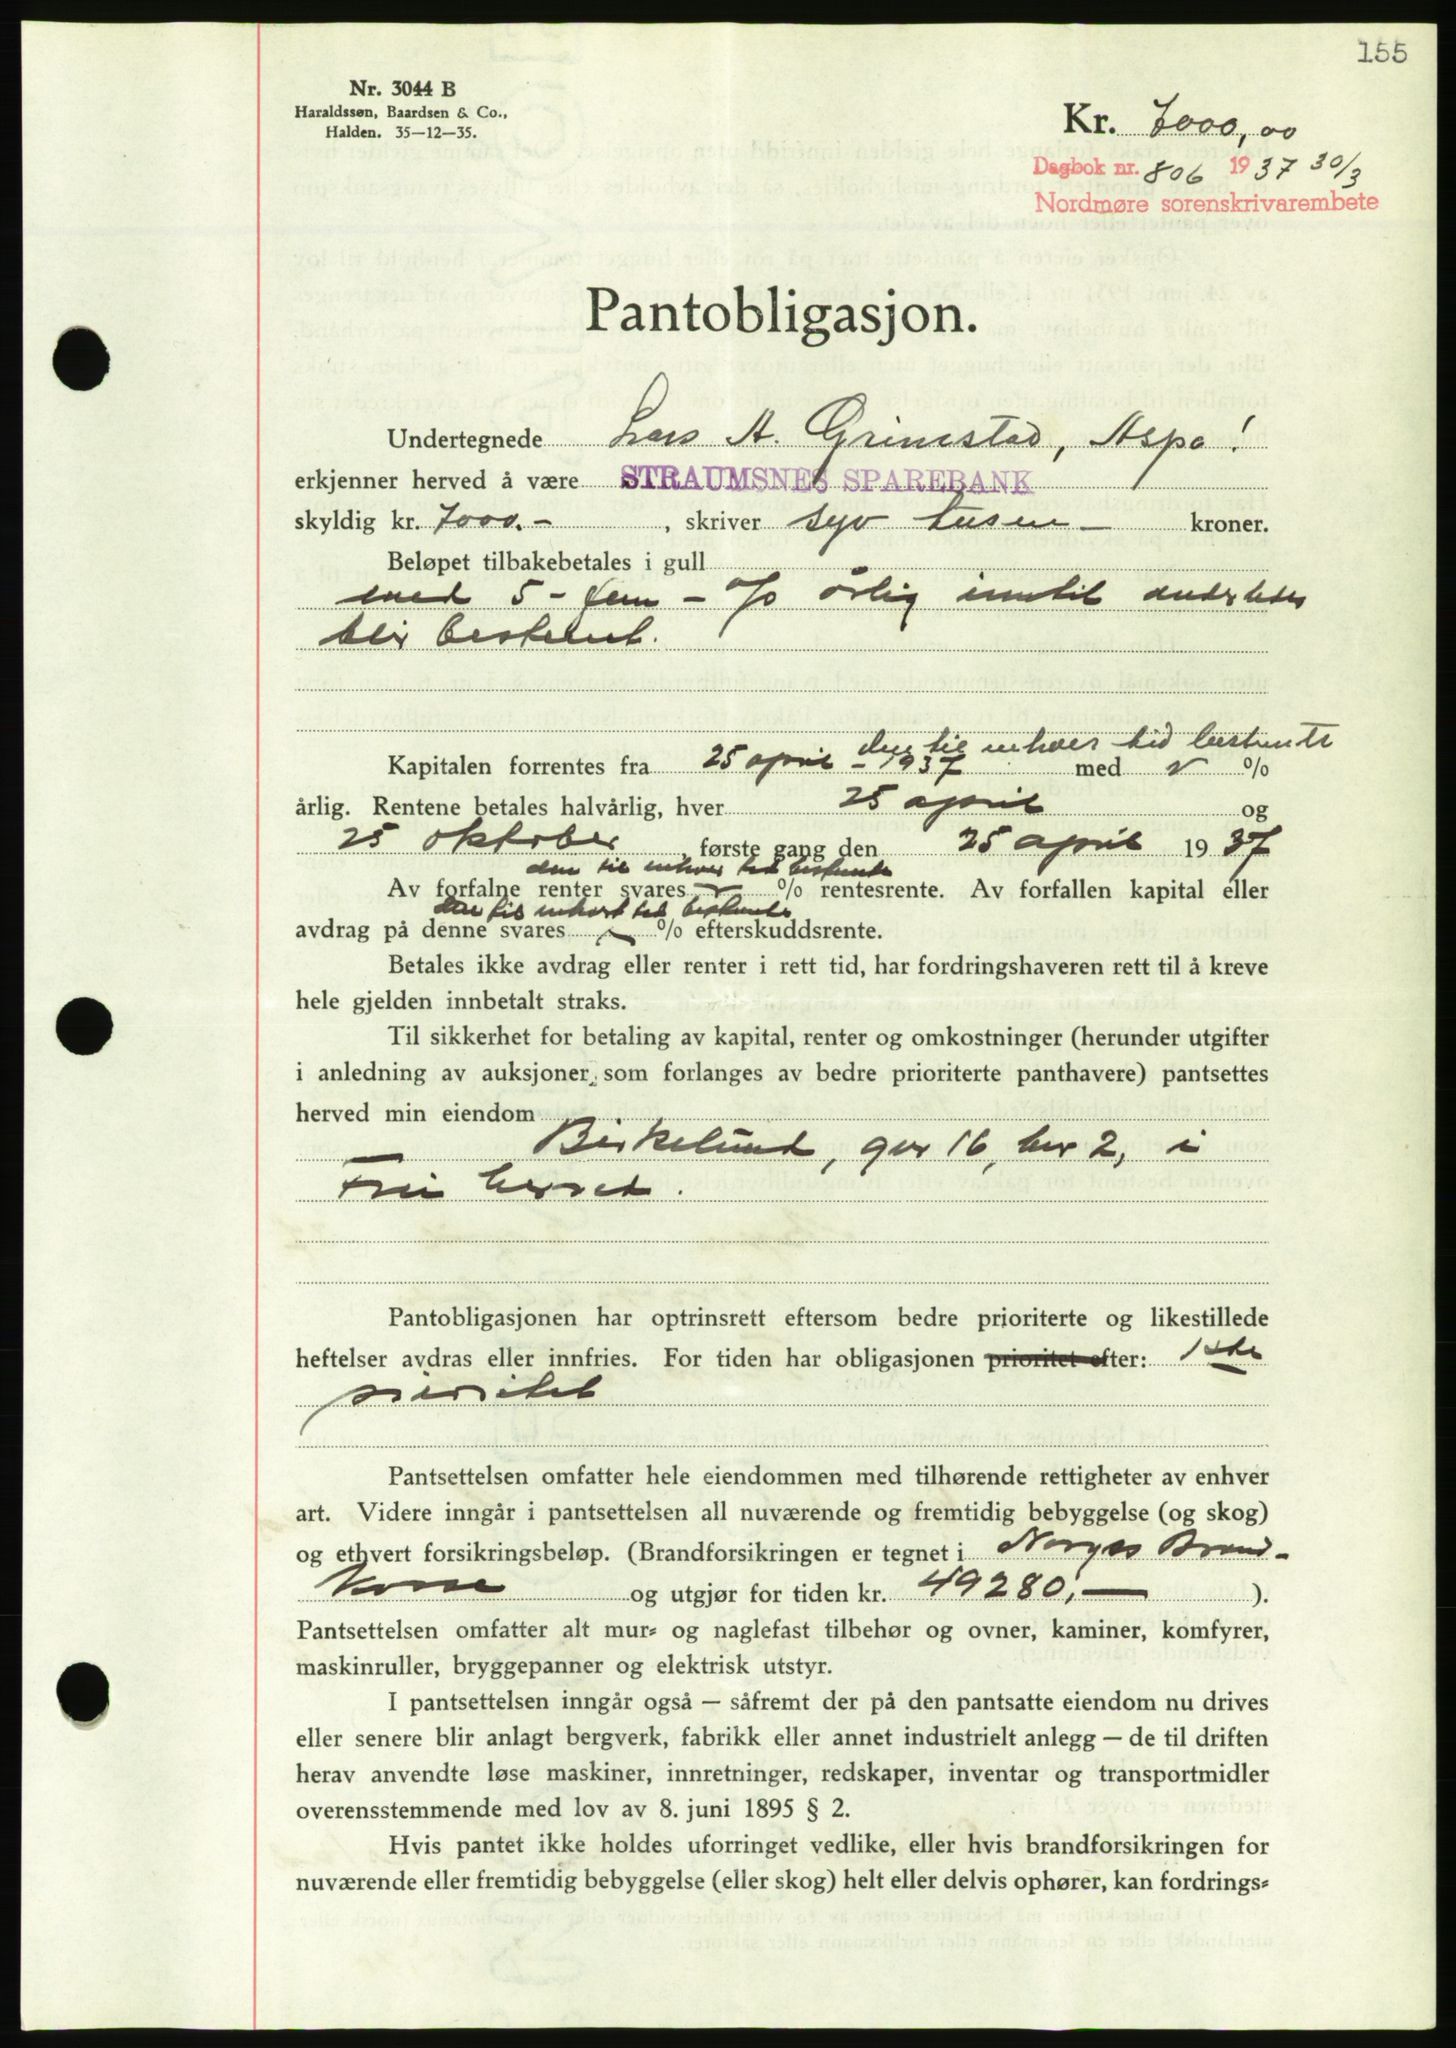 155
Nr. 3044 B
Haraldssøn, Baardsen & Co.,
Halden. 35—12—35.
Kr. 7000,00
Dagbok nr. 806 1937 30/3
Nordmøre sorenskrivarembete
Pantobligasjon.
Undertegnede Lars A. Grimstad, Aspa!
erkjenner herved å være STRAUMSNES SPAREBANK
skyldig kr. 7000.- , skriver syv tusen — kroner.
Beløpet tilbakebetales i gull
med 5 - fem - % årlig inntil anderledes
blir bestemt.
den til enhver tid bestemte
Kapitalen forrentes fra 25 april - 1937 med %
årlig. Rentene betales halvårlig, hver 25 april og
25 oktober , første gang den 25 april 1937
den til enhver tid bestemte
Av forfalne renter svares % rentesrente. Av forfallen kapital eller
den til enhver tid bestemte
avdrag på denne svares % efterskuddsrente.
Betales ikke avdrag eller renter i rett tid, har fordringshaveren rett til å kreve
hele gjelden innbetalt straks.
Til sikkerhet for betaling av kapital, renter og omkostninger (herunder utgifter
i anledning av auksjoner, som forlanges av bedre prioriterte panthavere) pantsettes
herved min eiendom
Birkelund, gnr 16, bnr 2, i
Frei herred.
Pantobligasjonen har optrinsrett eftersom bedre prioriterte og likestillede
heftelser avdras eller innfries. For tiden har obligasjonen prioritet efter: 1ste
prioritet
Pantsettelsen omfatter hele eiendommen med tilhørende rettigheter av enhver
art. Videre inngår i pantsettelsen all nuværende og fremtidig bebyggelse (og skog)
og ethvert forsikringsbeløp. (Brandforsikringen er tegnet i Norges Brand-
kasse og utgjør for tiden kr. 49280,— ).
Pantsettelsen omfatter alt mur- og naglefast tilbehør og ovner, kaminer, komfyrer,
maskinruller, bryggepanner og elektrisk utstyr.
I pantsettelsen inngår også — såfremt der på den pantsatte eiendom nu drives
eller senere blir anlagt bergverk, fabrikk eller annet industrielt anlegg — de til driften
herav anvendte løse maskiner, innretninger, redskaper, inventar og transportmidler
overensstemmende med lov av 8. juni 1895 § 2.
Hvis pantet ikke holdes uforringet vedlike, eller hvis brandforsikringen for
nuværende eller fremtidig bebyggelse (eller skog) helt eller delvis ophører, kan fordrings-